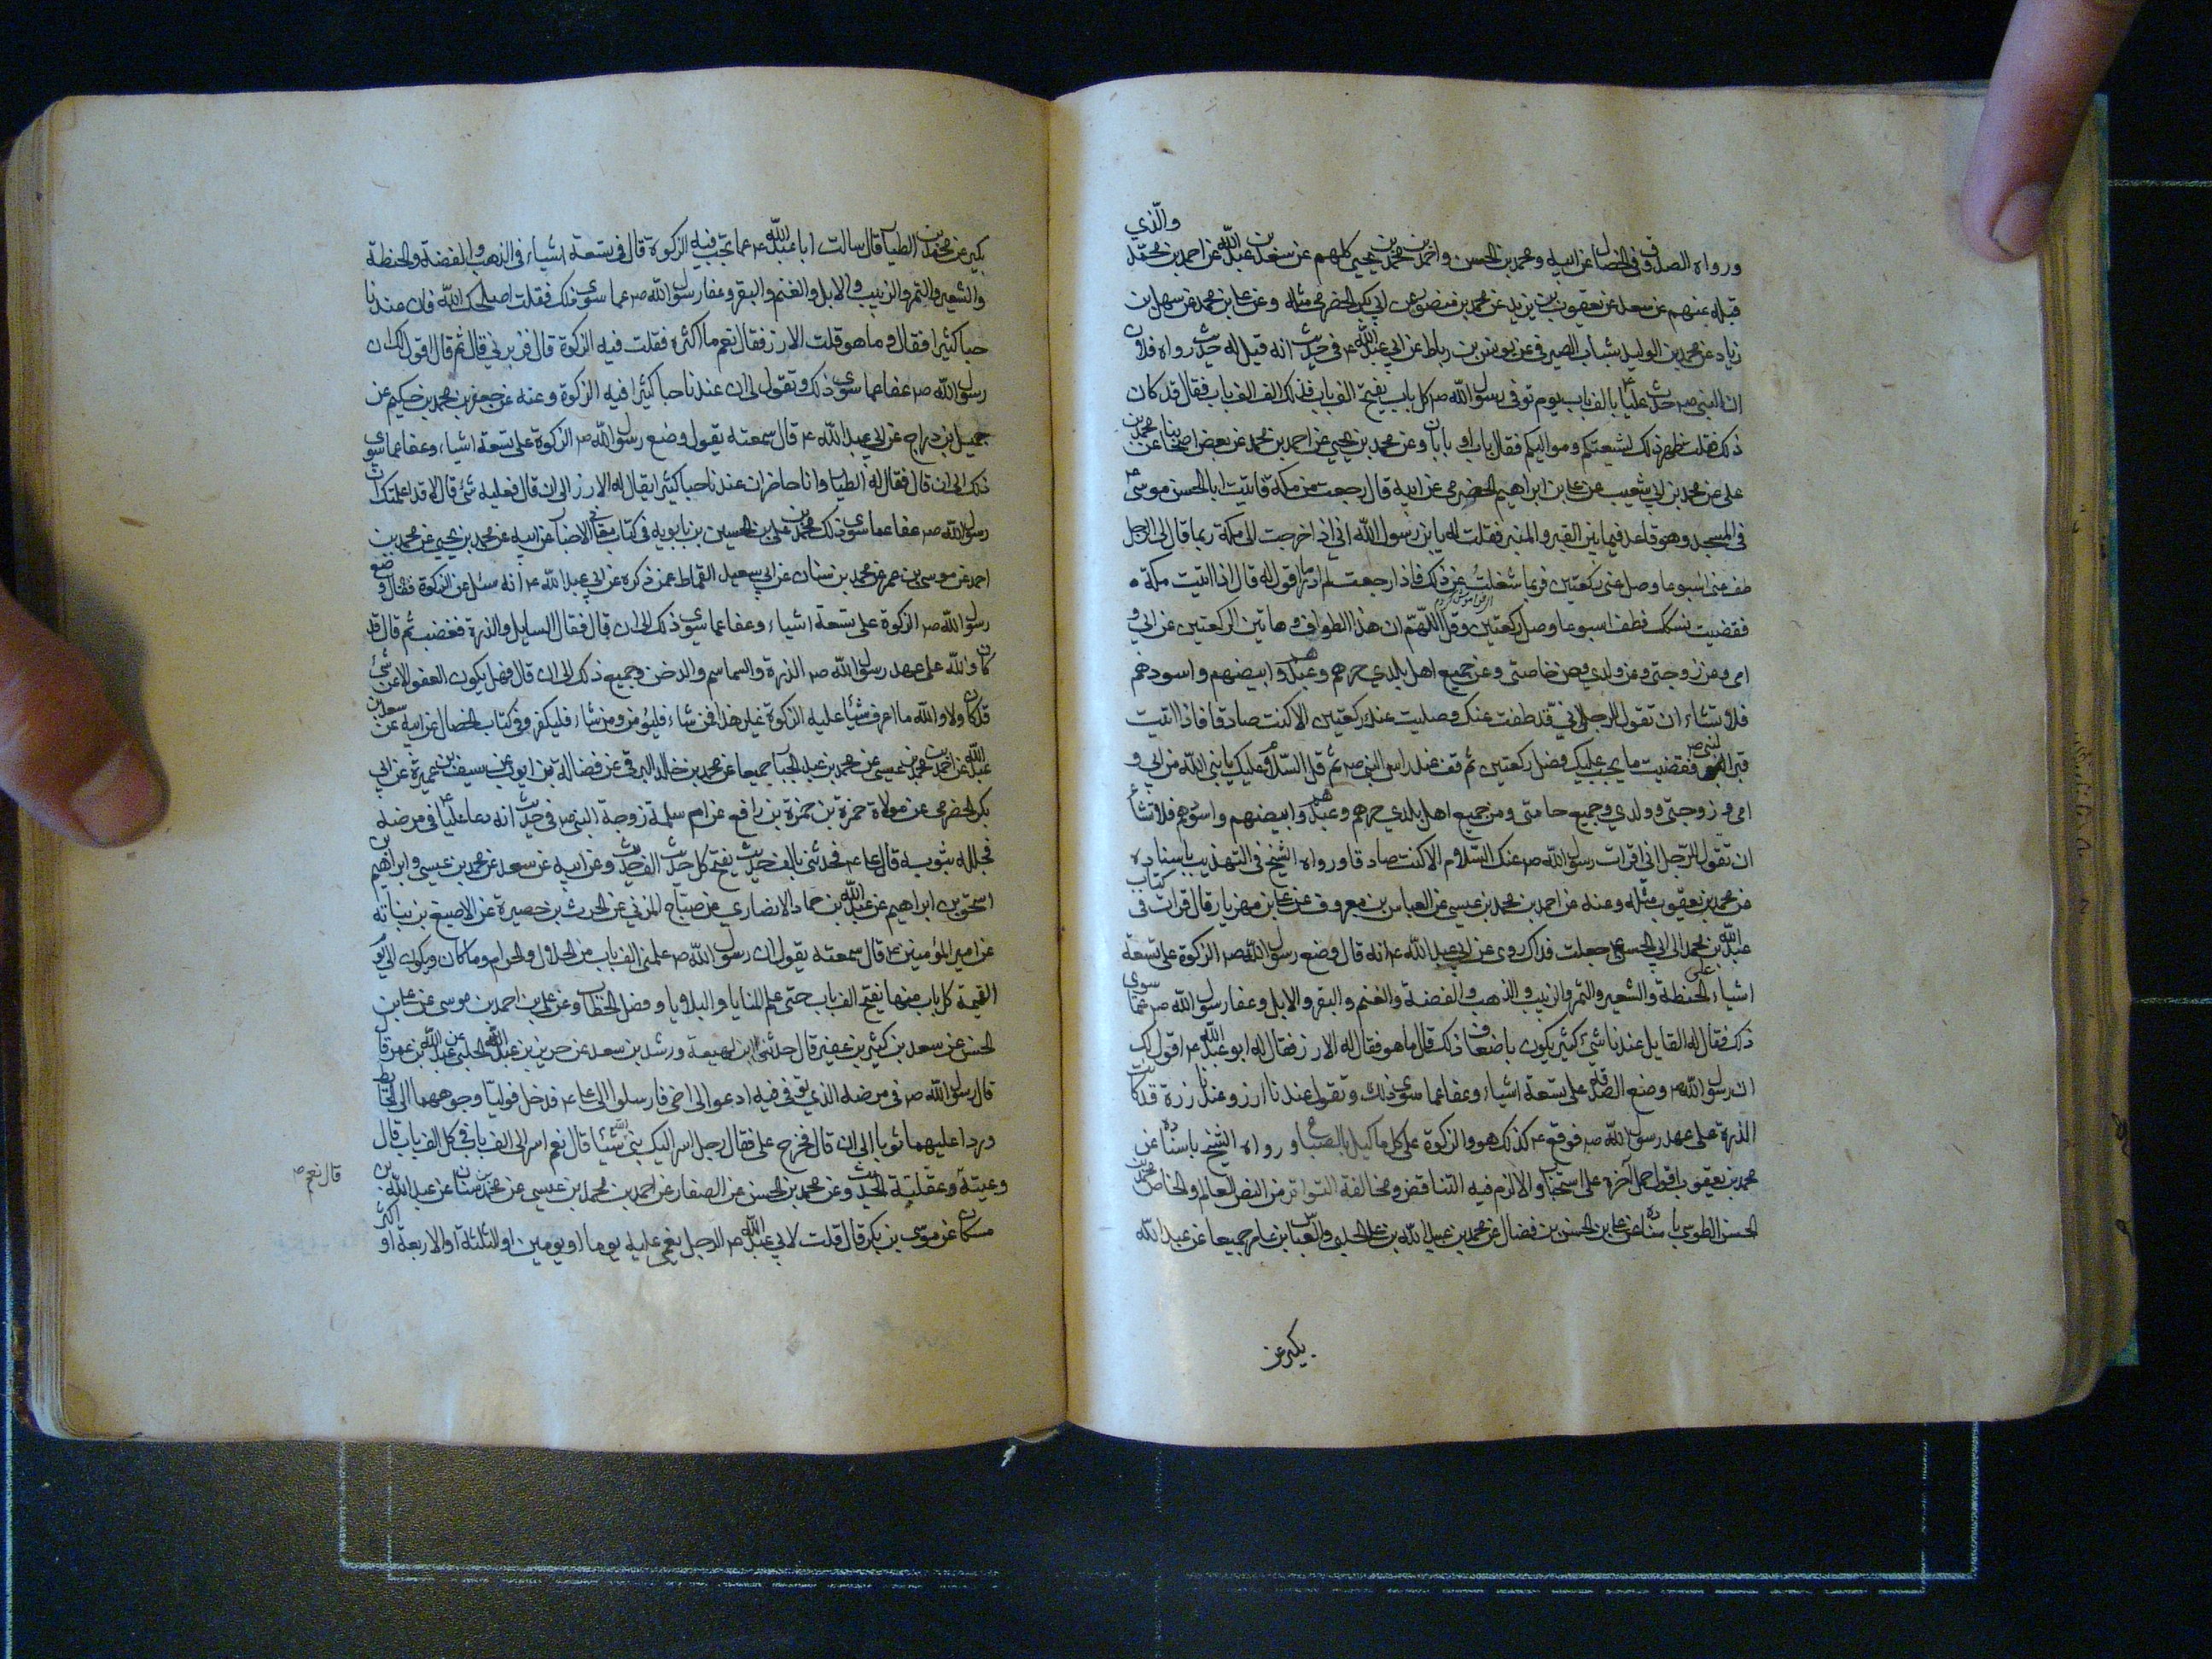 والذي
ورواه الصدوق في الخصال عن ابيه ومحمد بن الحسن واحمد بن محمد بن يحيى كلهم عن سعد بن عبد الله عن احمد بن محمد
قبله عنهم عن سعد عن يعقوب بن يزيد عن محمد بن منصور عن ابي بكر الحضرمي مثله وعن علي بن محمد عن سهل بن
زياد عن محمد بن الوليد شباب الصيرفي عن يونس بن رباط عن ابي عبد الله ع في حديث انه قيل له حديث رواه فلان
ان النبي ص حدث عليا ع بالف باب يوم توفي رسول الله ص كل باب يفتح الف باب فذلك الف الف باب فقال قد كان
ذلك فقلت فظهر ذلك لشيعتكم ومواليكم فقال باب او بابان وعن محمد بن يحيى عن احمد بن محمد عن بعض اصحابنا عن محمد بن
علي عن محمد بن ابي شعيب عن علي بن ابراهيم الحضرمي عن ابيه قال رجعت من مكة فاتيت ابا الحسن موسى ع
في المسجد وهو قاعد فيما بين القبر والمنبر فقلت له يا بن رسول الله اني اذا خرجت الى مكة ربما قال لي الرجل
طف عني اسبوعا وصل عني ركعتين فربما شغلت عن ذلك فاذا رجعت لم ادر ما اقول له قال اذا اتيت مكة
فقضيت نسكك فطف اسبوعا وصل ركعتين وقل اللهم ان هذا الطواف وهاتين الركعتين عن ابي و
امي وعن زوجتي وعن ولدي وعن خاصتي وعن جميع اهل بلدي حرهم وعبدهم وابيضهم واسودهم
فلا تشاء ان تقول للرجل اني قد طفت عنك وصليت عنك ركعتين الا كنت صادقا فاذا اتيت
قبر النبي ص فقضيت ما يجب عليك فصل ركعتين ثم قف عند راس النبي ص ثم قل السلام عليك يا نبي الله من ابي و
امي وزوجتي وولدي وجميع حامتي ومن جميع اهل بلدي حرهم وعبدهم وابيضهم واسودهم فلا تشاء
ان تقول للرجل اني اقرات رسول الله ص عنك السلام الا كنت صادقا ورواه الشيخ في التهذيب باسناده
عن محمد بن يعقوب مثله وعنه عن احمد بن محمد بن عيسى عن العباس بن معروف عن علي بن مهزيار قال قرات في كتاب
عبد الله بن محمد الى ابي الحسن ع جعلت فداك روى عن ابي عبد الله ع انه قال وضع رسول الله ص الزكوة على تسعة
اشياء على الحنطة والشعير والتمر والزبيب والذهب والفضة والغنم والبقر والابل وعفا رسول الله ص عما سوى
ذلك فقال له القايل عندنا شئ كثير يكون باضعاف ذلك قال ما هو فقال له الارز فقال له ابو عبد الله ع اقول لك
ان رسول الله ص وضع الصدقة على تسعة اشياء وعفا عما سوى ذلك وتقول عندنا ارز وعندنا ذرة قد كانت
الذرة على عهد رسول الله ص فوقع ع كذلك هو والزكوة على كل ما كيل بالصاع ورواه الشيخ باسناده عن
محمد بن يعقوب اقول حمل آخره على استحباب والا لزم فيه التناقض ومخالفة التواتر من النص العام والخاص محمد بن
الحسن الطوسي باسناده عن علي بن الحسن بن فضال عن محمد بن عبيد الله بن علي الحلبي والعباس بن عامر جميعا عن عبد الله
بكير عن
بكير عن محمد بن الطيار قال سالت ابا عبد الله ع عما تجب فيه الزكوة قال في تسعة اشياء في الذهب والفضة والحنطة
والشعير والتمر والزبيب والابل والغنم والبقر وعفا رسول الله ص عما سوى ذلك فقلت اصلحك الله فان عندنا
حبا كثيرا فقال وما هو قلت الارز فقال نعم ما اكثره فقلت فيه الزكوة قال فزبرني قال ثم قال اقول لك ان
رسول الله ص عفا عما سوى ذلك وتقول لي ان عندنا حبا كثيرا فيه الزكوة وعنه عن جعفر بن محمد بن حكيم عن
جميل بن دراج عن ابي عبد الله ع قال سمعته يقول وضع رسول الله ص الزكوة على تسعة اشياء وعفا عما سوى
ذلك الى ان قال فقال له الطيار وانا حاضر ان عندنا حبا كثيرا يقال له الارز الى ان قال فعليه شئ قال لا قد اعلمتك ان
رسول الله ص عفا عما سوى ذلك محمد بن علي بن الحسين بن بابويه في كتاب معاني الاخبار عن ابيه عن محمد بن يحيى عن محمد بن
احمد عن موسى بن عمر عن محمد بن سنان عن ابي سعيد القماط عمن ذكره عن ابي عبد الله ع انه سئل عن الزكوة فقال وضع
رسول الله ص الزكوة على تسعة اشياء وعفا عما سوى ذلك الى ان قال فقال السايل والذرة فغضب ثم قال قد
كان والله على عهد رسول الله ص الذرة والسماسم والدخن وجميع ذلك الى ان قال فهل يكون العفو الا عن شئ
قد كان ولا والله ما اعرف شيئا عليه الزكوة غير هذا فمن شاء فليؤمن ومن شاء فليكفر وفي كتاب الخصال عن ابيه عن سعد بن
عبد الله عن احمد بن محمد بن عيسى عن محمد بن عبد الجبار جميعا عن محمد بن خالد البرقي عن فضالة بن ايوب عن سيف بن عميرة عن ابي
بكر الحضرمي عن مولاه حمزة بن رافع عن ام سلمة زوجة النبي ص في حديث انه دعا عليا ع في مرضه
فجلله بثوبه قال علي ع فحدثني بالف حديث يفتح كل حديث الف حديث وعن ابيه عن سعد عن محمد بن عيسى وابراهيم بن
اسحق بن ابراهيم عن عبد الله بن حماد الانصاري عن صباح المزني عن الحرث بن حصيرة عن الاصبغ بن نباته
عن امير المؤمنين ع قال سمعته يقول ان رسول الله ص علمني الف باب من الحلال والحرام وما كان ويكون الى يوم
القيمة كل باب منها يفتح الف باب حتى علم المنايا والبلايا وفصل الخطاب وعن علي بن احمد بن موسى عن علي بن
الحسن عن سعد بن كثير بن عفير قال حدثني ابن لهيعة ورشد بن سعد عن حريز بن عبد الله الحلبي عن عبد الله بن عمر قال
قال رسول الله ص في مرضه الذي توفي فيه ادعوا لي اخي فارسلوا الى علي ع فدخل فوليا وجوههما الى الحايط
وردا عليهما ثوبا الى ان قال فخرج علي فقال رجل اسر اليك نبي الله شيئا قال نعم اسر الي الف باب في كل الف باب قال
وعيته وعقلته الحديث وعن محمد بن الحسن عن الصفار عن احمد بن محمد بن عيسى عن محمد بن سنان عن عبد الله بن
قال نعم ص
مسكان عن موسى بن بكر قال قلت لابي عبد الله ع الرجل يغمى عليه يوما او يومين او الثلثة او الاربعة او اكثر